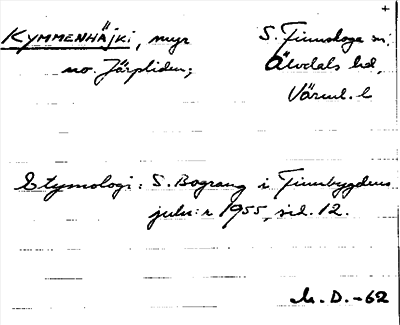 +
KYMMENHÄJKI, myr S. Finnskoga sn,
no. Järpliden; Älvdals hd,
Värml. l
Etymologi: S. Bograng i Finnbygdens
julnr 1955, sid. 12.
M. D. -62